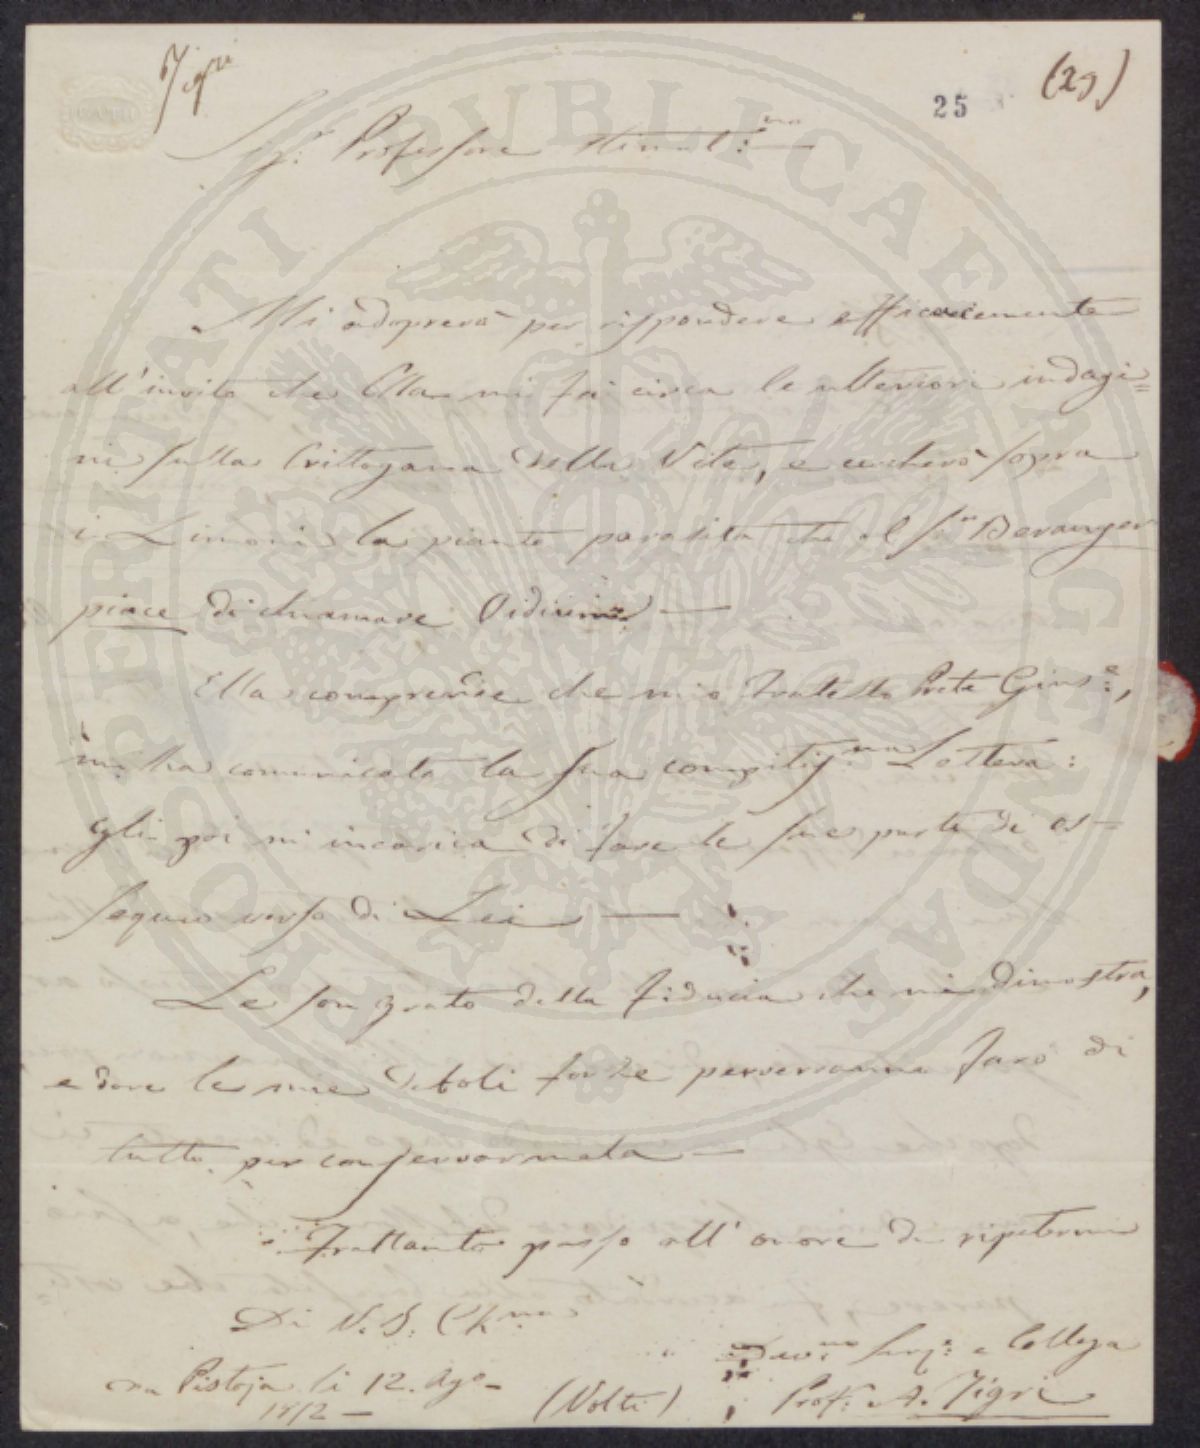 Tigri
25
(29)
Sig: Professore Stimat:mo
Mi adoprerò per rispondere efficacemente
all'invito che Ella mi fa circa le ulteriori indagi=
ni sulla Crittogama della Vite, e cercherò sopra
i Limoni la pianta parasita che al Sr Beranger
piace di chiamare Oidium. —
Ella comprende che mio Fratello Prete Gius:e,
mi ha comunicato la sua compitis:ma Lettera:
egli poi mi incarica di fare le sue parti di os-
sequio verso di Lei —
Le son grato della fiducia che mi dimostra,
e dove le mie deboli forze perverranno farò di
tutto per conservarmela —
Frattanto passo all'onore di ripetermi
Di V. S. Ch:ma
Pistoja li 12. Ago-
1852 —
(Volti)
Dev:mo Serv:e e Collega
Prof: A. Tigri
PROSPERITATI PVBLICAE AVGENDAE